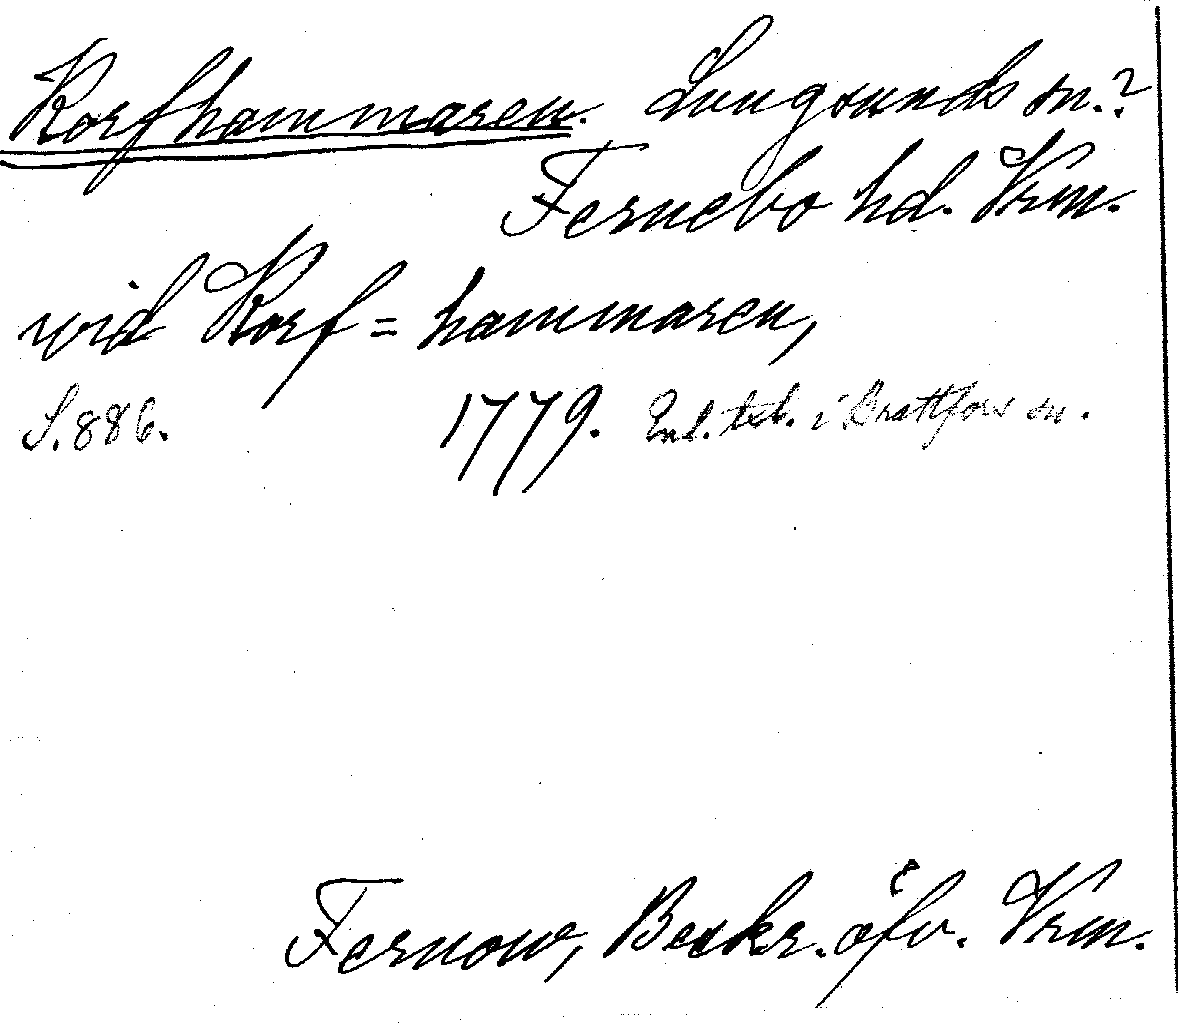 Korfhammaren. Lungsunds sn.?
Fernebo hd. Vrm.
wid Korf=hammaren,
S. 886. 1779. Enl. tebl. i Brattfors sn.
Fernow, Beskr. öfv. Vrm.